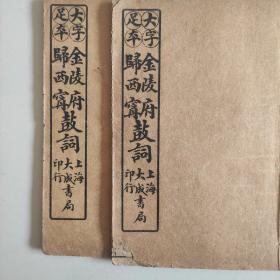 大字
足本
金陵府
歸西寧
鼓詞
上海
大成書局
印行
大字
足本
金陵府
歸西寧
鼓詞
上海
大成書局
印行